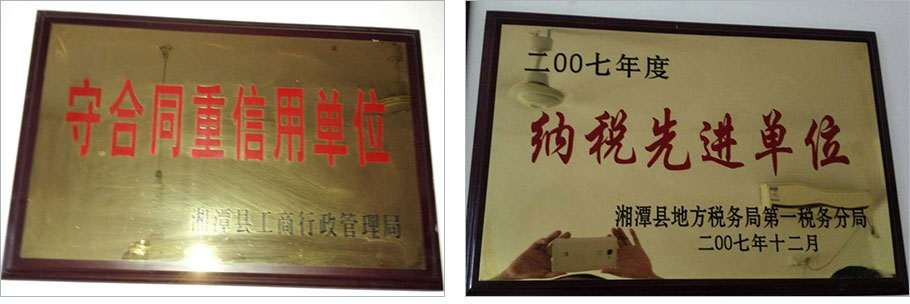 守合同重信用单位
湘潭县工商行政管理局
二00七年度
纳税先进单位
湘潭县地方税务局第一税务分局
二00七年十二月